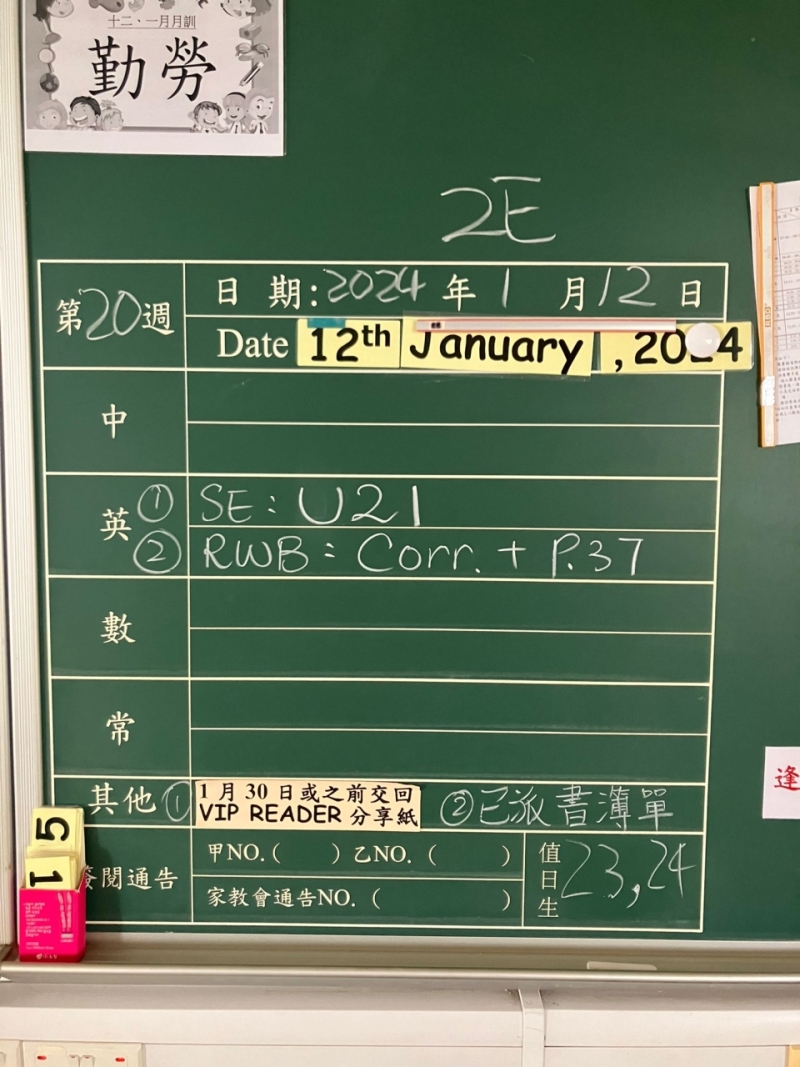 十二、一月月訓
勤勞
2E
第20週
日期:2024年1月12日
Date 12th January, 2024
中
英
① SE: U21
② RWB: Corr. + P.37
數
常
其他
① 1月30日或之前交回
VIP READER 分享紙
② 已派書簿單
閱通告
甲NO.( ) 乙NO. ( )
家教會通告NO. ( )
值日生 23,24
5
1
逢